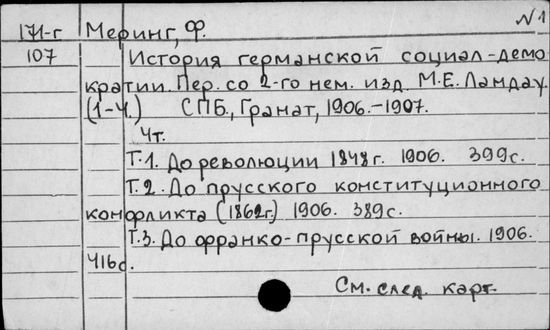 N1
171-г Меринг, Ф.
107 История германской социал-демо
кратии. Пер. со 2-го нем. изд. М.Е. Ландау.
(1-4.) СПБ., Гранат, 1906.-1907.
4т.
Т.1. До революции 1848г. 1906. 399с.
Т.2. До прусского конституционного
конфликта (1862г.) 1906. 389с.
Т.3. До франко-прусской войны. 1906.
416с.
См. след. карт.